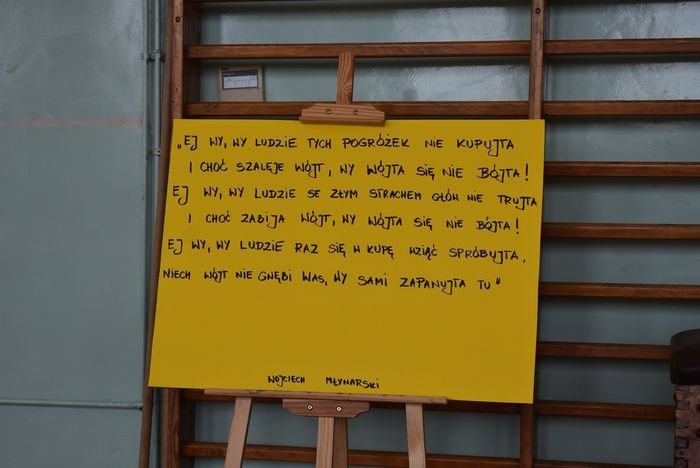 „EJ WY, WY LUDZIE TYCH POGRÓŻEK NIE KUPUJTA
I CHOĆ SZALEJE WÓJT, WY WÓJTA SIĘ NIE BÓJTA!
EJ WY, WY LUDZIE SE ZŁYM STRACHEM GŁÓW NIE TRUJTA
I CHOĆ ZABIJA WÓJT, WY WÓJTA SIĘ NIE BÓJTA!
EJ WY, WY LUDZIE RAZ SIĘ W KUPĘ WZIĄĆ SPRÓBUJTA,
NIECH WÓJT NIE GNĘBI WAS, WY SAMI ZAPANUJTA TU"
WOJCIECH MŁYNARSKI